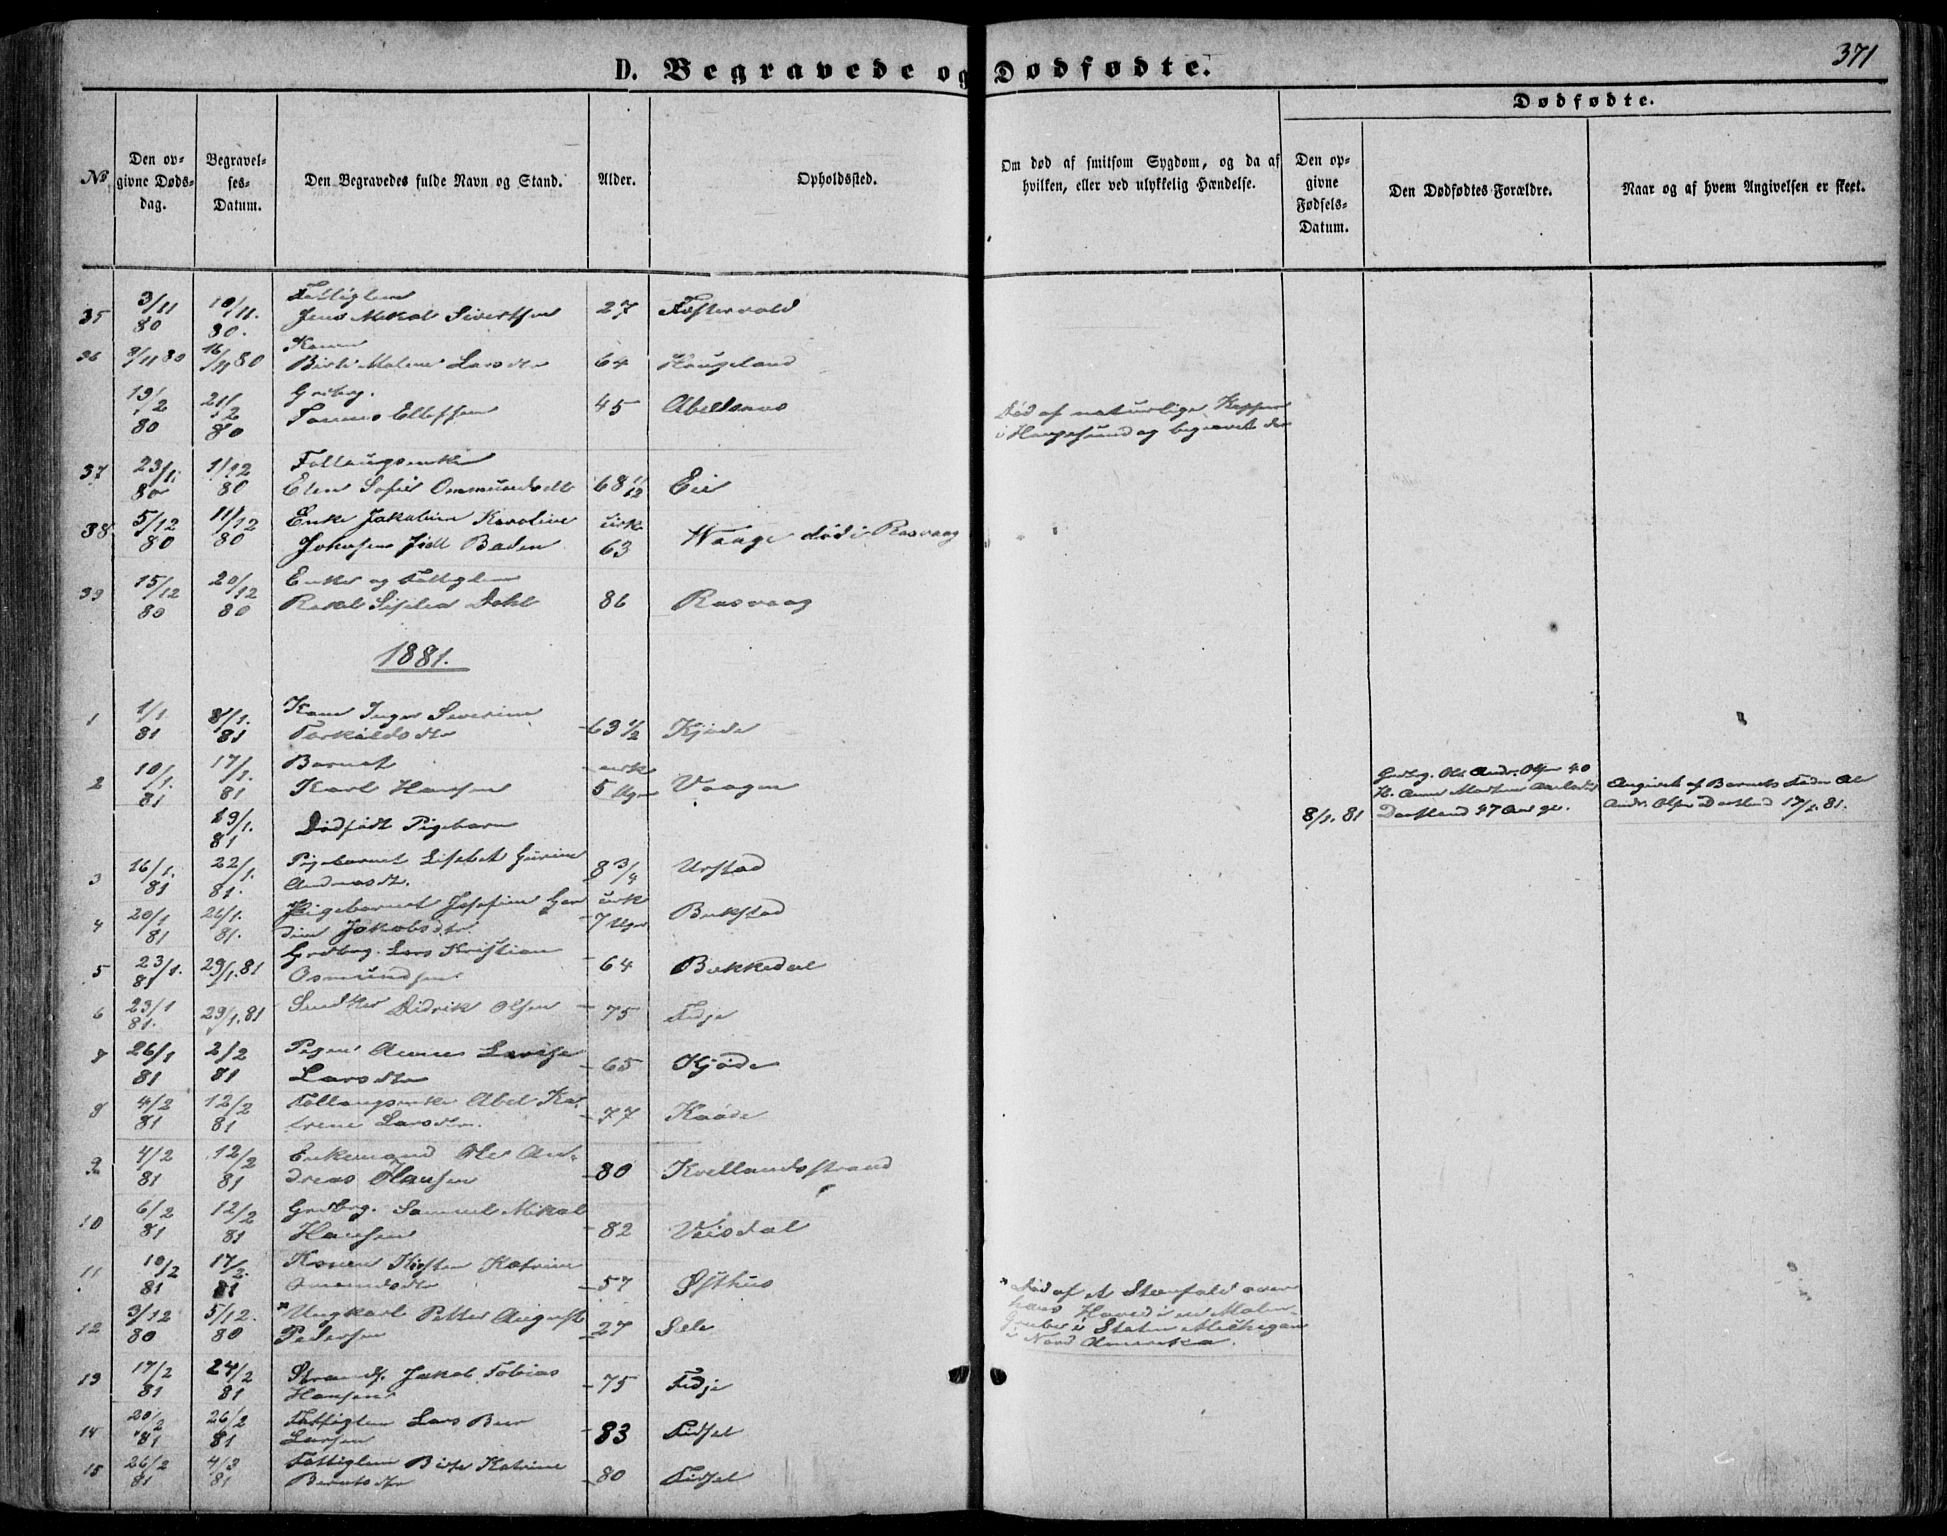 371
D. Begravede og Dødfødte.
Dødfødte.
No
Den opgivne Dødsdag.
Begravelses-Datum.
Den Begravedes fulde Navn og Stand.
Alder.
Opholdssted.
Om død af smitsom Sygdom, og da af hvilken, eller ved ulykkelig Hændelse.
Den opgivne Fødsels-Datum.
Den Dødfødtes Forældre.
Naar og af hvem Angivelsen er skeet.
35 3/11 80 10/11. 80. Fattiglem
Jens Mikal Sivertsen 27
36 9/11 80 16/11 80 Konen
Malene Larsdtr 64 Haugeland
19/2 80 21/2 80 Grbrg.
Tønnes Ellefsen 45 Abelsnes Død af naturlige Kopper
i Haugesund og begravet der
37 23/11 80 1/12 80 Follaugsenke
Elen Sofie Ommundsdtr 68 1/12 Eie
38. 5/12 80 11/12 80 Enke Jakobine Karoline cirk
Johnsen født Baden 63 Waage død i Rasvaag
39 15/12 80 20/12 80 Enke og Fattiglem
Rakel Sisilia Dahl 86 Rasvaag
1881.
1 1/1 81 8/1. 81 Kone Inger Severine
Torkildsdtr 63 1/2 Kjøde
2 10/1. 81 17/1. 81 Barnet cirk
Karl Hansen 5 Uger Vaagen
19/1. 81 Dødfødt Pigebarn 8/1. 81 Grbrg. Ole Andr. Olsen 40
Dåtland 47 Aar gl. Angivet af Barnets Fader Ole
Andr. Olsen Dåtland 17/1. 81.
3 16/1. 81 22/1. 81. Pigebarnet Lisebet Gurine
Andreasdtr. 8 3/4 Urstad
4 20/1 81 26/1. 81. Pigebarnet Josefine cirk
Jakobsdtr. 7 Uger Bukstad
5 23/1. 81 29/1. 81 Grdbrg. Lars Kristian
Osmundsen 64 Bakkedal
6 23/1 81. 29/1. 81 Didrik Olsen 75 Fedje
7 26/1 81 2/2 81 Pigen Anne Lovise
Larsdtr 65 Kjøde
8 4/2 81 12/2 81 Follaugsenke Abel Ka-
trine Larsdtr. 77 Kaade
9 4/2 81 12/2 81 Enkemand Ole An-
dreas Hansen 80 Kvellandsstrand
10 6/2 81 12/2 81 Grdbrg. Samuel Mikal
Hansen 82 Veisdal
11 10/2 81 17/2. 81 Konen Kirsten Katrine
57 Østhus
12 3/12 80 5/12. 80 * Ungkarl Petter August
Pedersen 27 Sele * Død af et Stenfald over
hans Hoved i en Malm-
Grube i Staten Michigan
i Nord Amerika.
13 17/2 81 24/2 81 Strands. Jakob Tobias
Hansen 75 Fedje
14 20/2 81 26/2 81 Fattiglem Lars Beer
Larsen 83 Fidsel
15 26/2 81 4/3 81 Fattiglem Birte Katrine
Berntsdtr 80 Fidsel